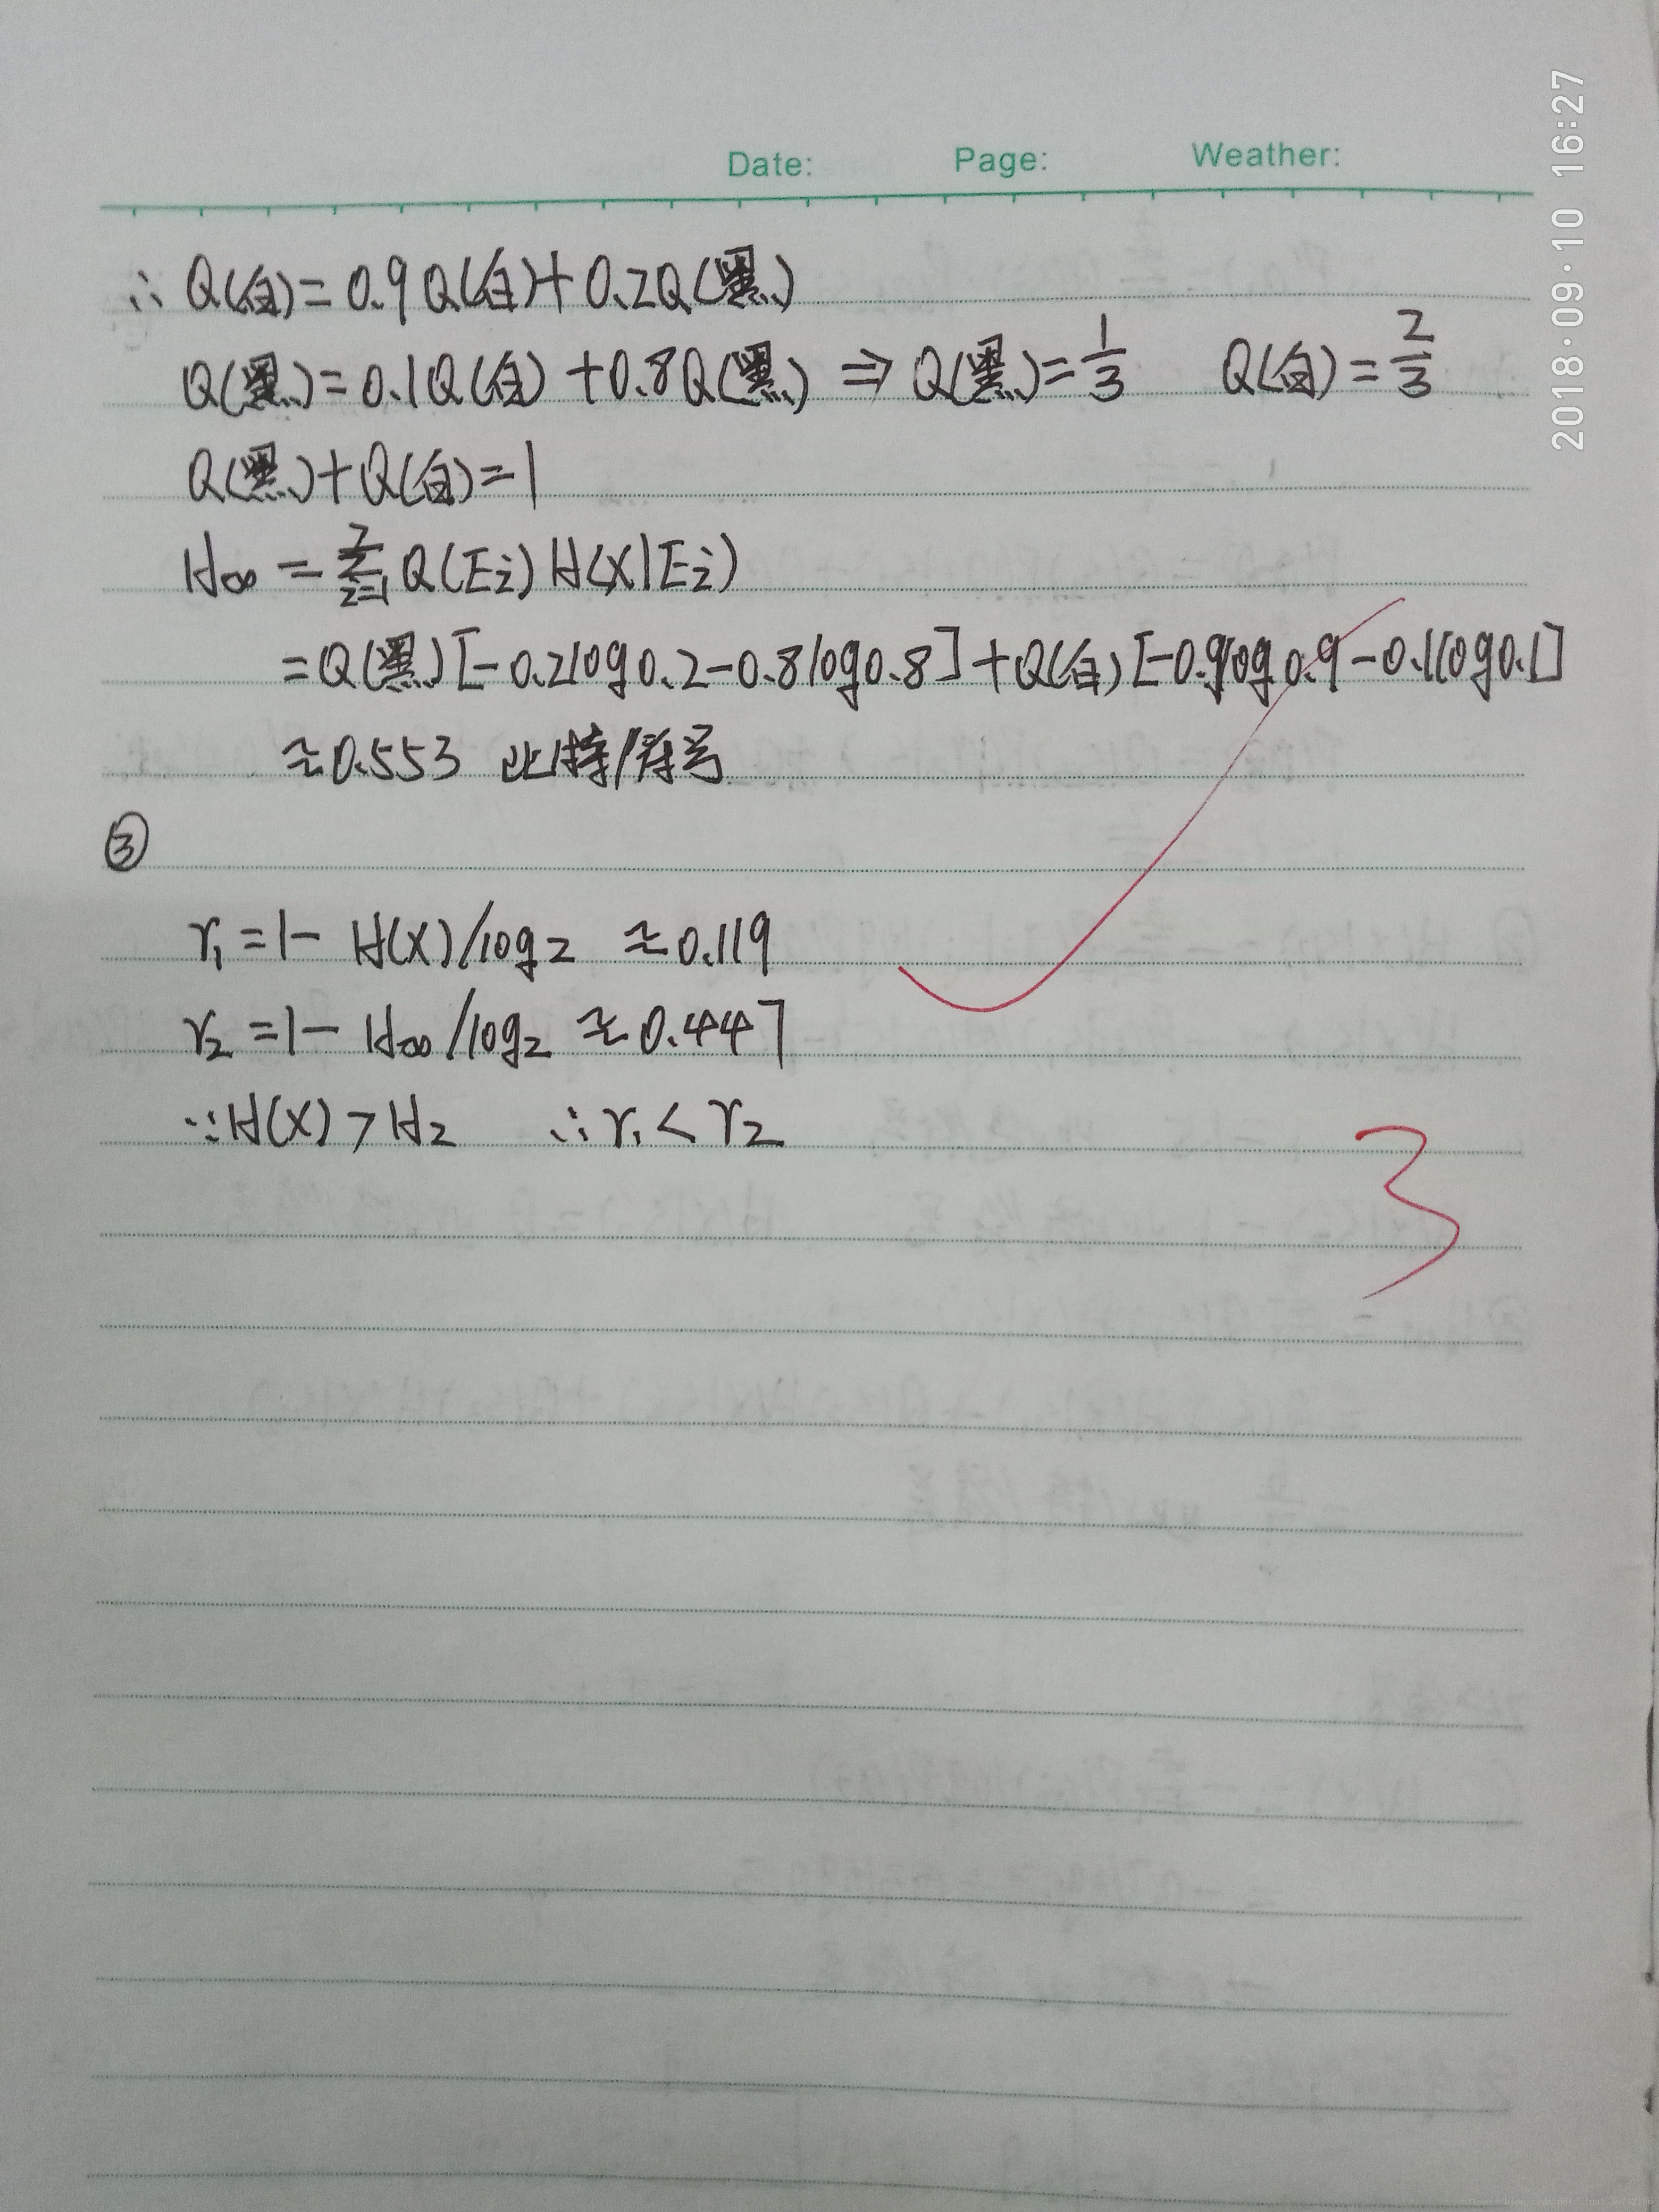 Date: Page: Weather:
2018·09·10 16:27
∴ Q(白)=0.9Q(白)+0.2Q(黑)
Q(黑)=0.1Q(白)+0.8Q(黑) ⇒ Q(黑)=1/3 Q(白)=2/3
Q(黑)+Q(白)=1
H∞ = ∑_{i=1}^{2} Q(Ei) H(X|Ei)
=Q(黑)[-0.2log0.2-0.8log0.8]+Q(白)[-0.9log0.9-0.1log0.1]
≈0.553 比特/符号
③
r₁=1- H(X)/log2 ≈0.119
r₂=1- H∞/log2 ≈0.447
∵H(X)>H₂ ∴r₁<r₂
3